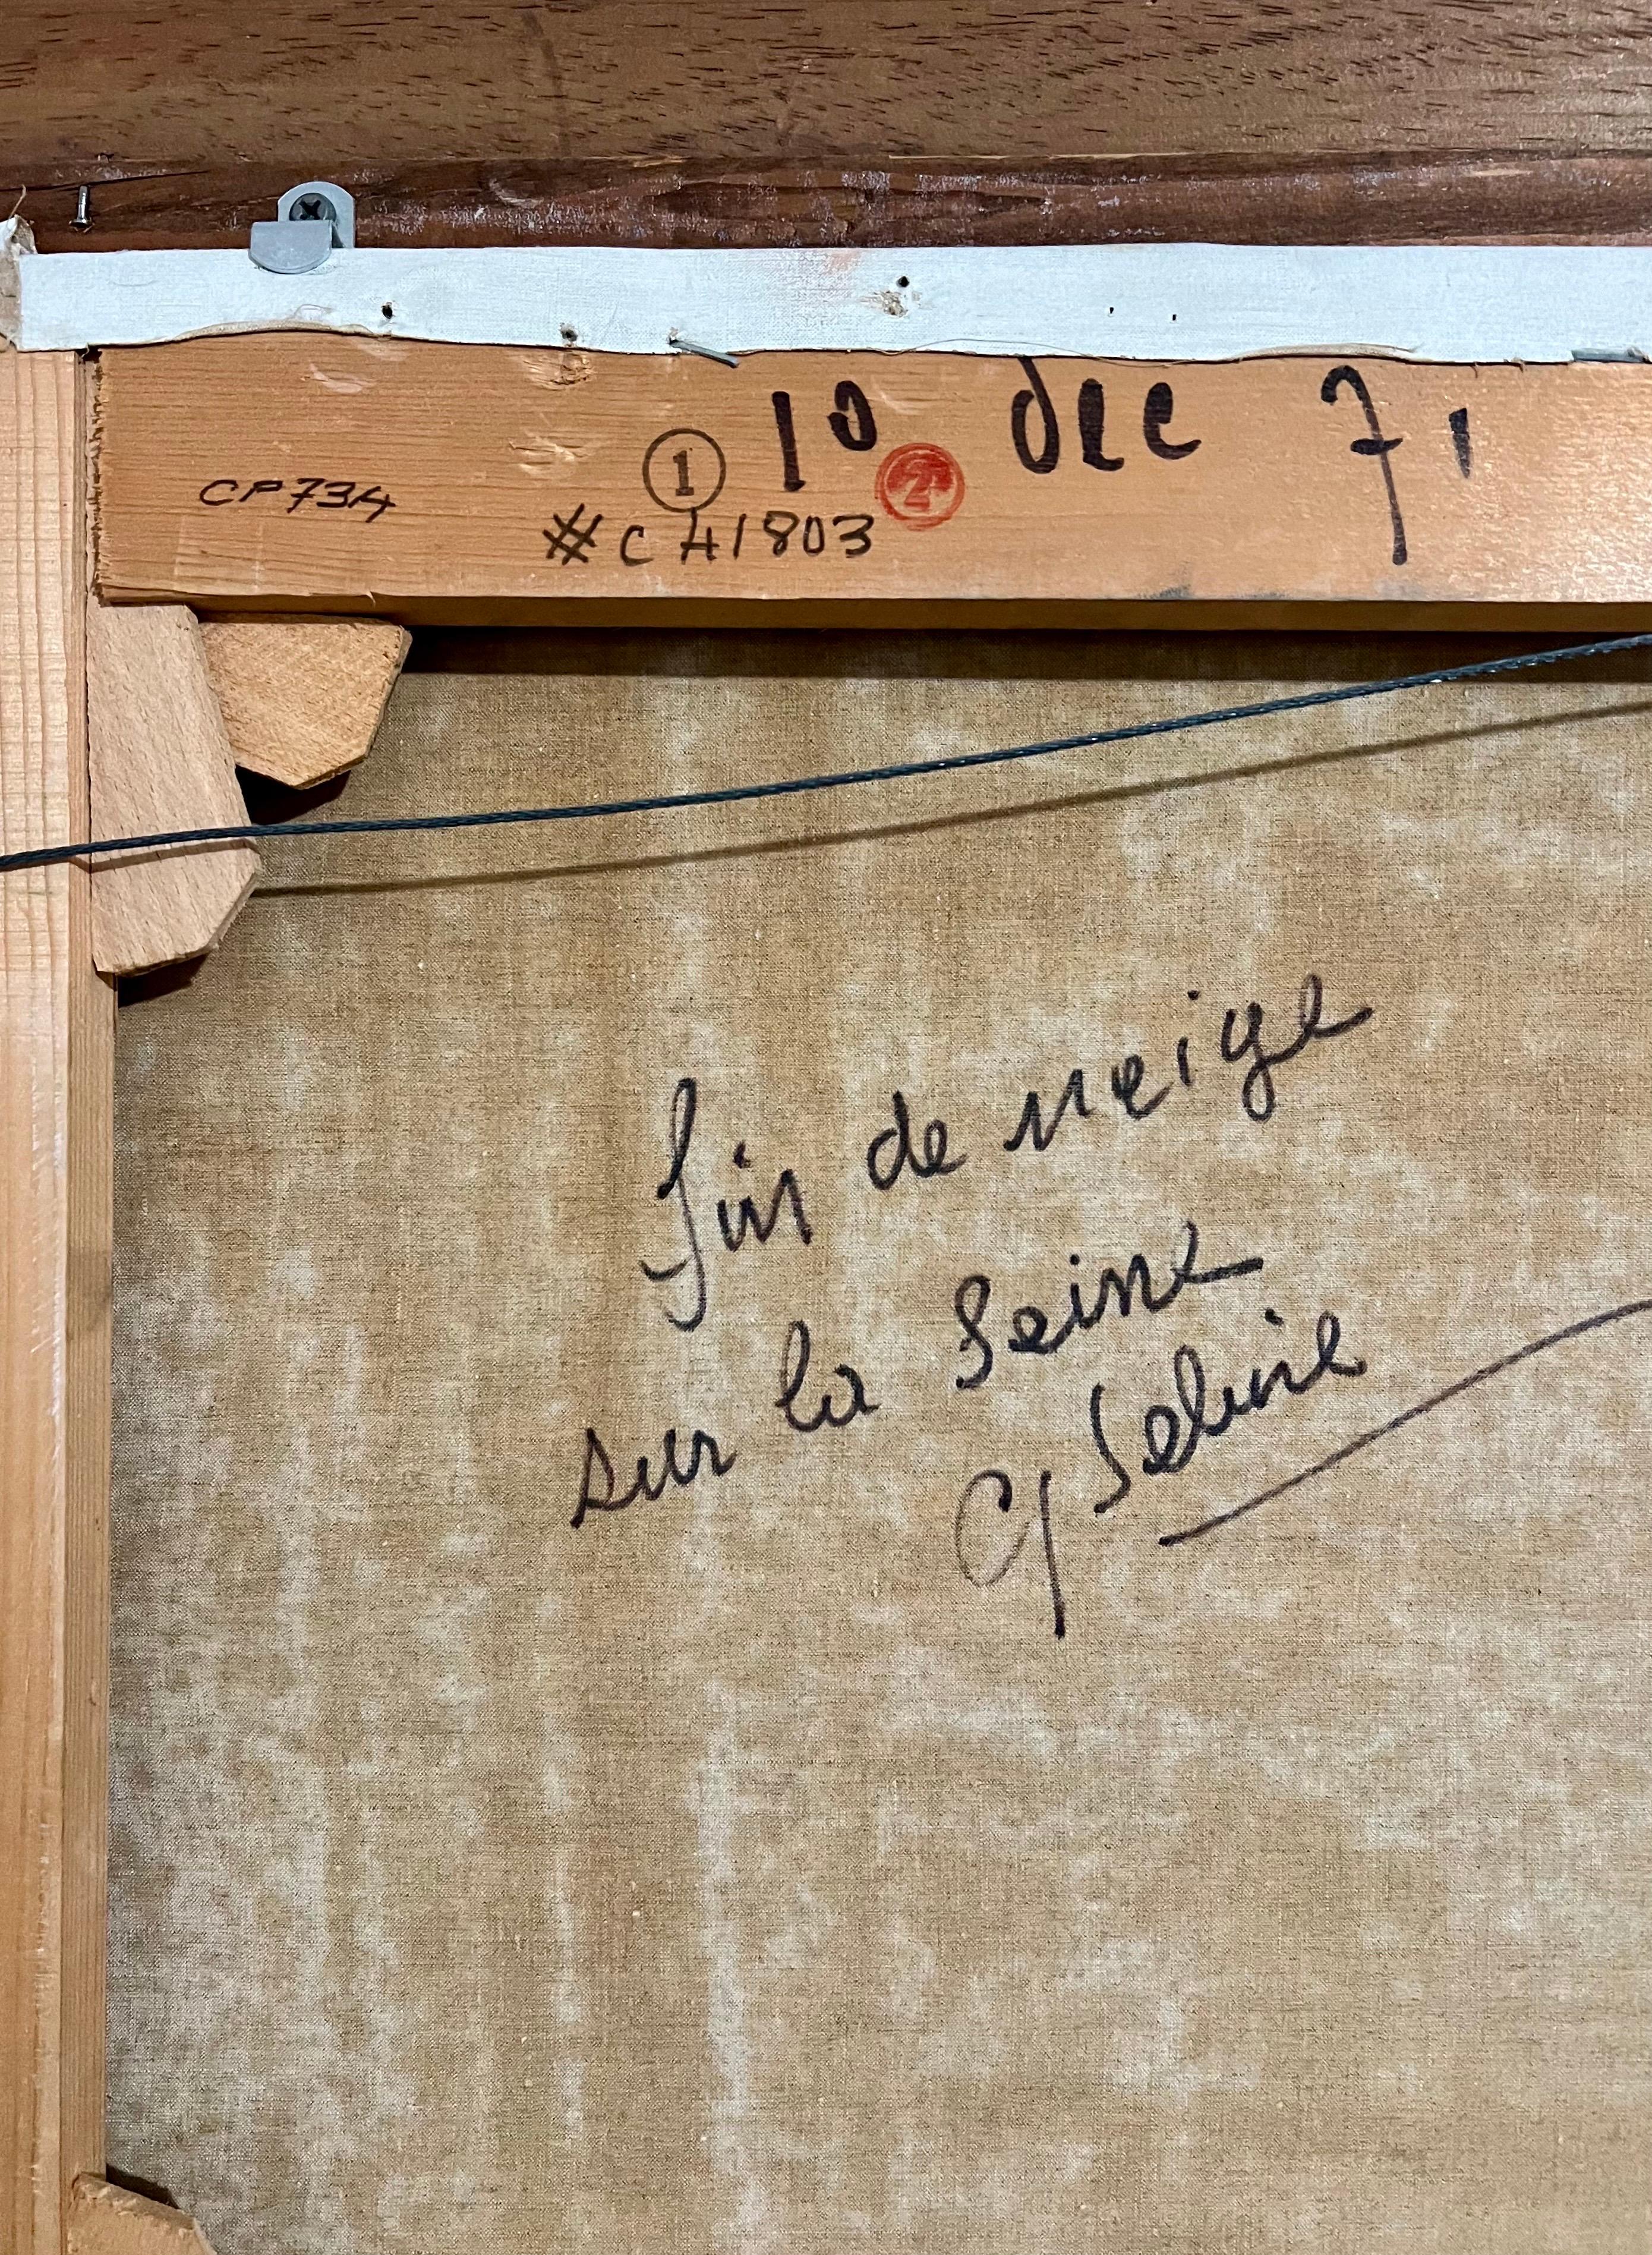 10 dec 71
CP734
1
2
#CH1803
fin de neige
sur la Seine
G Sebire